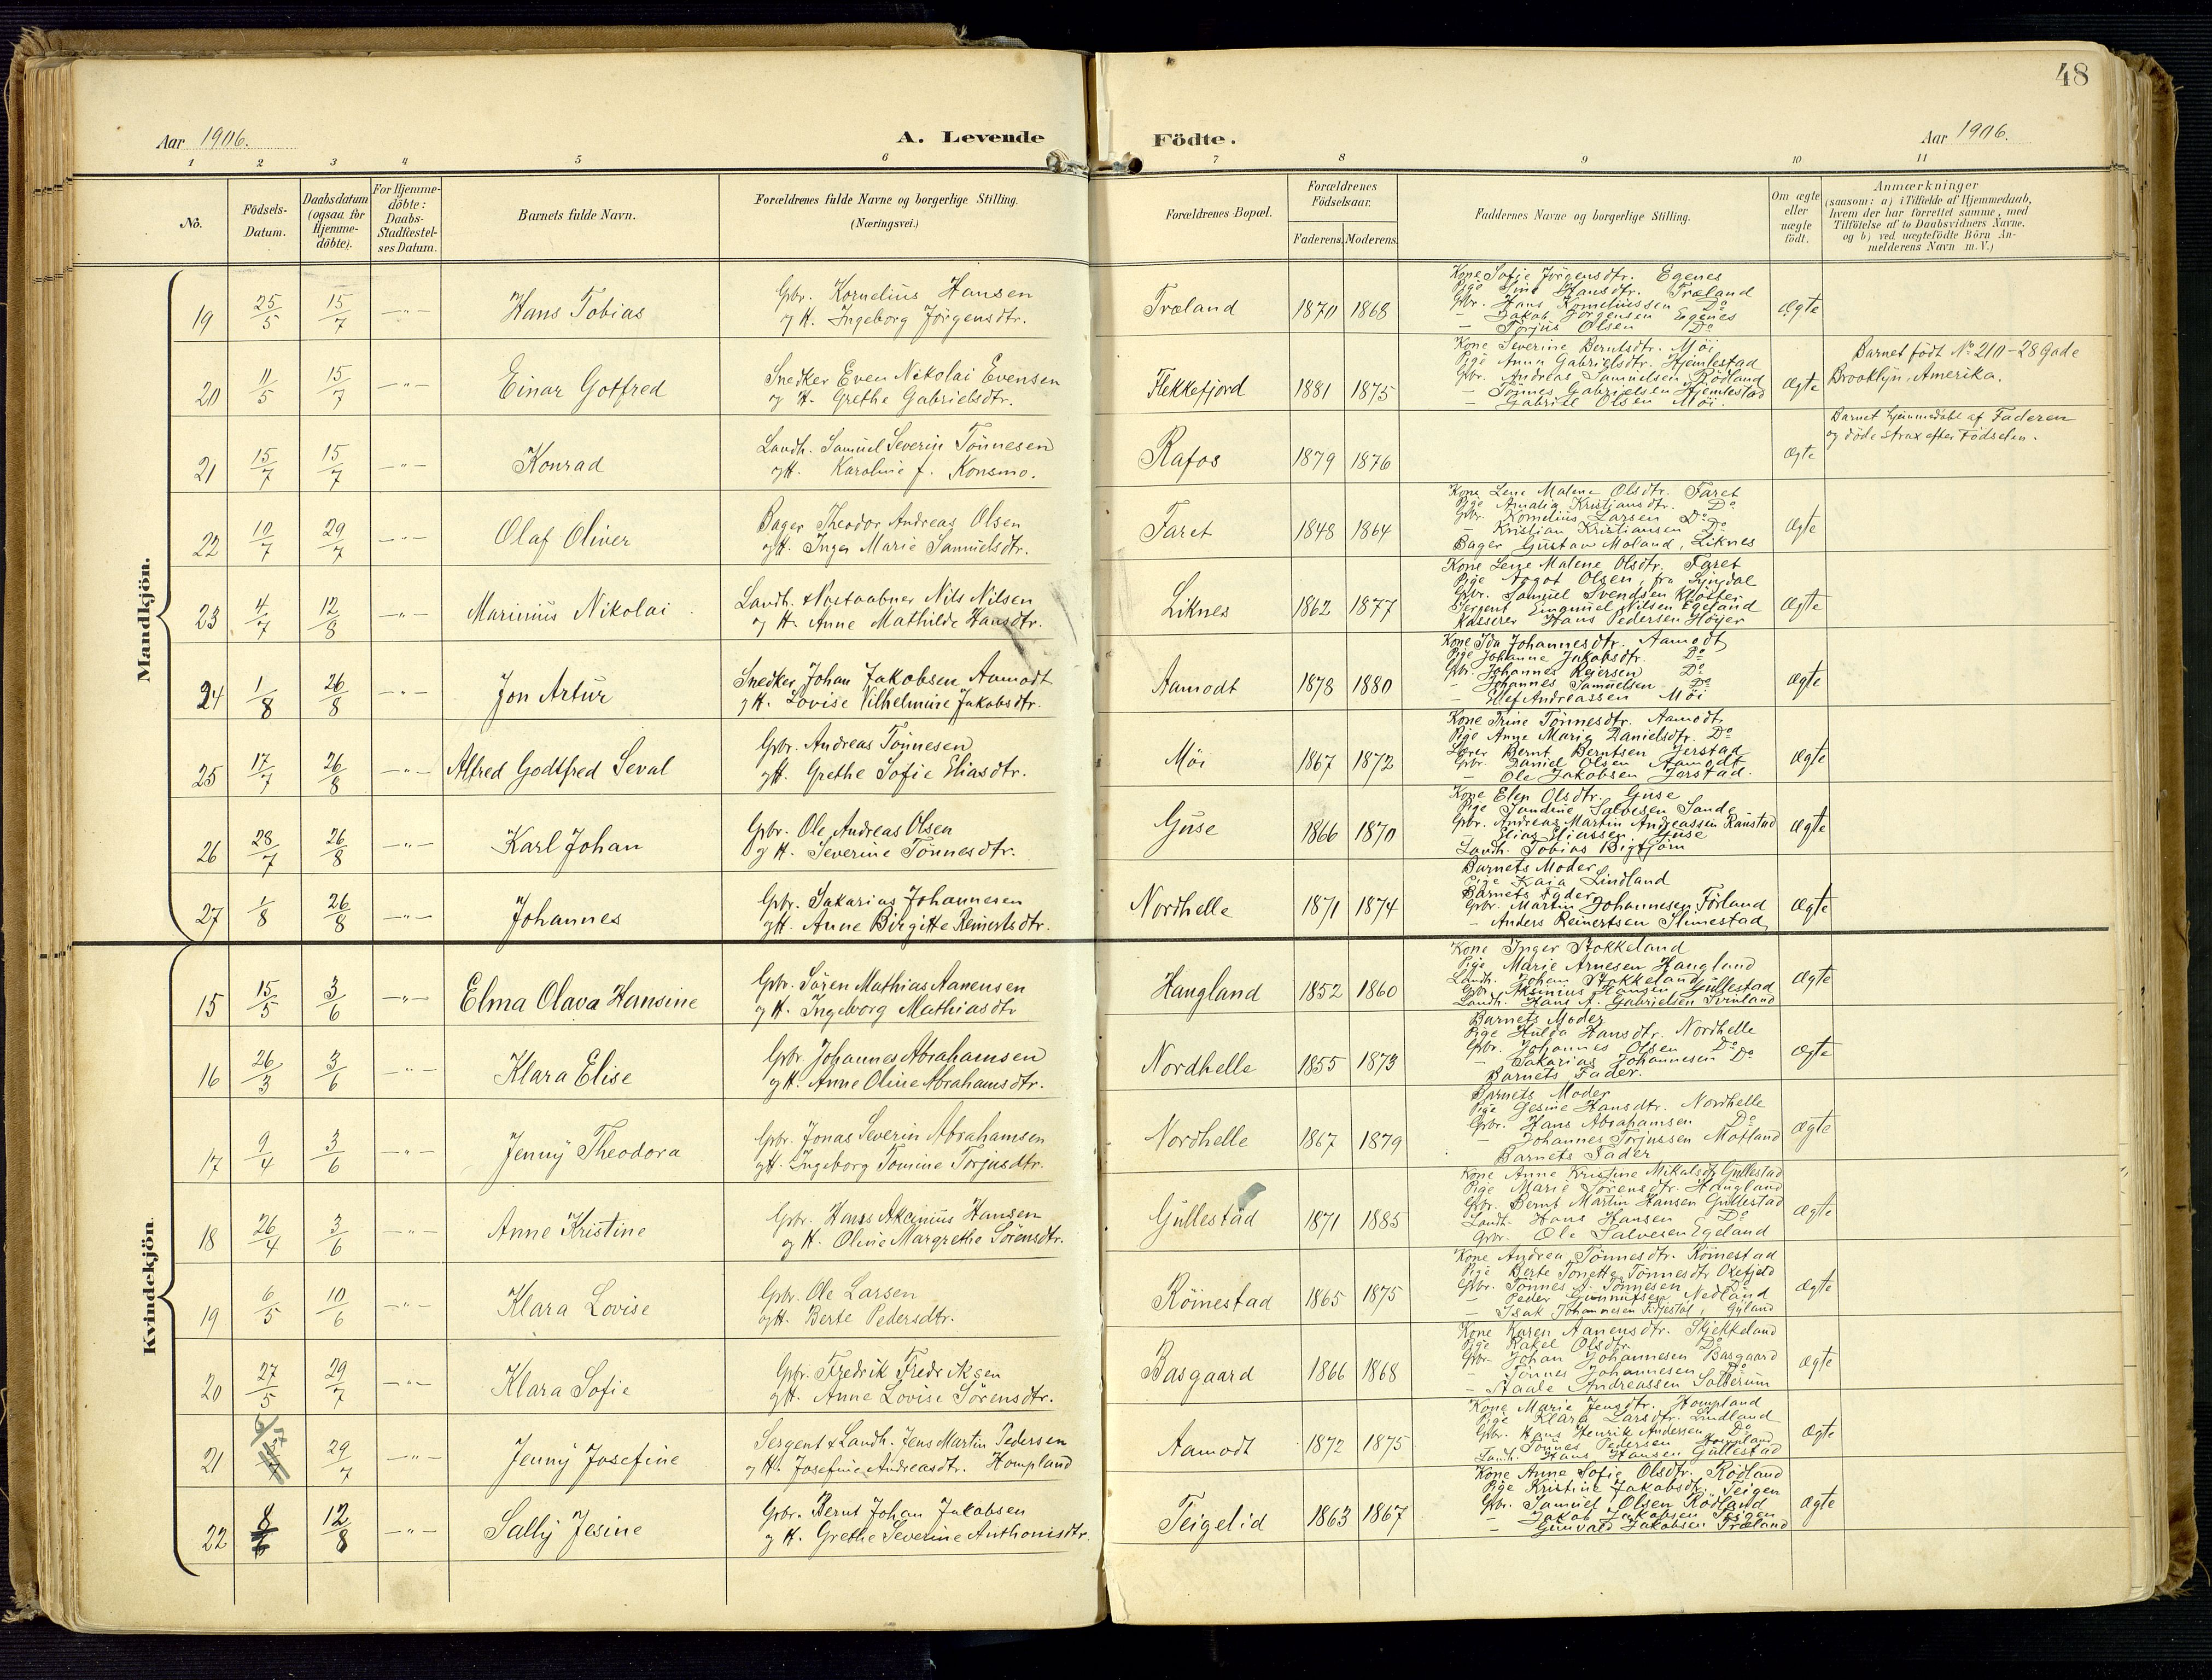 48
Aar 1906.
A. Levende Födte.
Aar 1906.
1 2 3 4 5 6 7 8 9 10 11
No.
Födsels-
Datum.
Daabsdatum
(ogsaa for
Hjemme-
döbte).
For Hjemme-
döbte:
Daabs-
Stadfæstel-
ses Datum.
Barnets fulde Navn.
Forældrenes fulde Navne og borgerlige Stilling.
(Næringsvei.)
Forældrenes Bopæl.
Forældrenes
Födselsaar.
Faderens. Moderens.
Faddernes Navne og borgerlige Stilling.
Om ægte
eller
uægte
födt.
Anmærkninger
(saasom: a) i Tilfælde af Hjemmedaab,
hvem der har forrettet samme, med
Tilföielse af to Daabsvidners Navne.
og b) ved uægtefödte Börn An-
melderens Navn m. V.)
Mandkjön.
19 25/5 15/7 -"- Hans Tobias
Gbr. Kornelius Hansen
og H. Ingeborg Jörgensdtr.
Træland 1870 1868
Kone Sofie Jörgensdtr. Egenes
Pige Sine Hansdtr. Træland
Gbr. Hans Korneliussen Do
- Jakob Jörgensen Egenes
- Torjus Olsen Do
Ægte
20 11/5 15/7 -"- Einar Gotfred
Snedker Even Nikolai Evensen
og H. Grethe Gabrielsdtr.
Flekkefjord 1881 1875
Kone Severine Berntsdtr. Möi
Pige Anna Gabrielsdtr. Hjemlestad
Gbr. Andreas Samuelsen Rödland
- Tönnes Gabrielsen Hjemlestad
- Gabriel Olsen Möi.
Ægte
Barnet födt No 210-28 Gade
Brooklyn, Amerika.
21 15/7 15/7 -"- Konrad
Landh. Samuel Severin Tönnesen
og H. Karoline f. Konsmo.
Rafos 1879 1876
Ægte
Barnet hjemmedöbt af Faderen
og döde strax efter Födselen.
22 10/7 29/7 -"- Olaf Oliver
Bager Theodor Andreas Olsen
og H. Inger Marie Samuelsdtr.
Faret 1848 1864
Kone Lene Malene Olsdtr. Faret
Pige Amalia Kristiansdtr. Do
Gbr. Kornelius Larsen Do
- Kristian Kristiansen Do
Bager Gustav Moland, Liknes
Ægte
23 4/7 12/8 -"- Marinius Nikolai
Landh. & Postaabner Nils Nilsen
og H. Anne Mathilde Hansdtr.
Liknes 1862 1877
Kone Lene Malene Olsdtr. Faret
Pige Aagot Olsen, fra Lyngdal
Gbr. Samuel Svendsen Kloster
Sergent Emanuel Nilsen Egeland
Kasserer Hans Pedersen Höyer
Ægte
24 1/8 26/8 -"- Jon Artur
Snedker Johan Jakobsen Aamodt
og H. Lovise Vilhelmine Jakobsdtr.
Aamodt 1878 1880
Kone Ida Johannesdtr. Aamodt
Pige Johanne Jakobsdtr. Do
Gbr. Johannes Reiersen Do
- Johannes Samuelsen Do
- Ellef Andreassen Möi
Ægte
25 17/7 26/8 -"- Alfred Godtfred Seval
Gbr. Andreas Tönnesen
og H. Grethe Sofie Eliasdtr.
Möi 1867 1872
Kone Trine Tönnesdtr. Aamodt
Pige Anne Marie Danielsdtr. Do
Lærer Bernt Berntsen Jerstad
Gbr. Daniel Olsen Aamodt
- Ole Jakobsen Jerstad.
Ægte
26 28/7 26/8 -"- Karl Johan
Gbr. Ole Andreas Olsen
og H. Severine Tönnesdtr.
Guse 1866 1870
Kone Elen Olsdtr. Guse
Pige Jandine Salvesen Sande
Gbr. Andreas Martin Andreassen Raustad
- Elias Eliassen Guse
Landh. Tobias Bigtjörn
Ægte
27 1/8 26/8 -"- Johannes
Gbr. Sakarias Johannesen
og H. Anne Birgitte Reinertsdtr.
Nordhelle 1871 1874
Barnets Moder
Pige Kaia Lindland
Barnets Fader
Gbr. Martin Johannesen Förland
- Anders Reinertsen Slimestad
Ægte
Kvindekjön.
15 15/5 3/6 -"- Elma Olava Hansine
Gbr. Sören Mathias Aanensen
og H. Ingeborg Mathiasdtr
Haugland 1852 1860
Kone Inger Stokkeland
Pige Marie Arnesen Haugland
Landh. Johan Stokkeland
Gbr. Aksinius Hansen Gullestad
Landh. Hans A. Gabrielsen
Ægte
16 26/3 3/6 -"- Klara Elise
Gbr. Johannes Abrahamsen
og H. Anne Oline Abrahamsdtr.
Nordhelle 1855 1873
Barnets Moder
Pige Hulda Hansdtr. Nordhelle
Gbr. Johannes Olsen Do
- Sakarias Johannesen Do
Barnets Fader.
Ægte
17 9/4 3/6 -"- Jenny Theodora
Gbr. Jonas Severin Abrahamsen
og H. Ingeborg Tomine Torjusdtr.
Nordhelle 1867 1879
Barnets Moder
Pige Gesine Hansdtr. Nordhelle
Gbr. Hans Abrahamsen Do
- Johannes Torjussen Motland
Barnets Fader
Ægte
18 26/4 3/6 -"- Anne Kristine
Gbr. Hans Aksinius Hansen
og H. Oline Margrethe Sörensdtr.
Gullestad 1871 1885
Kone Anne Kristine Mikalsdtr Gullestad
Pige Marie Sörensdtr. Haugland
Gbr. Bernt Martin Hansen Gullestad
Landh. Hans Hansen Do
Gbr. Ole Salvesen Egeland
Ægte
19 6/5 10/6 -"- Klara Lovise
Gbr. Ole Larsen
og H. Berte Pedersdtr.
Röinestad 1865 1875
Kone Andrea Tönnesdtr. Röinestad
Pige Berte Tonette Tönnesdtr Oxefjeld
Gbr. Tönnes A. Tönnesen Do
- Peder Gunnufsen Nedland
- Isak Johannesen, Gyland
Ægte
20 27/5 29/7 -"- Klara Sofie
Gbr. Fredrik Fredriksen
og H. Anne Lovise Sörensdtr.
Basgaard 1866 1868
Kone Karen Aanensdtr. Skjekkeland
Pige Rakel Olsdtr. Do
Gbr. Johan Johannesen Basgaard
- Tönnes Johannesen Do
- Staale Andreassen Solberum
Ægte
21 6/7 29/7 -"- Jenny Josefine
Sergent & Landh. Jens Martin Pedersen
og H. Josefine Andreasdtr. Hompland
Aamodt 1872 1875
Kone Marie Jensdtr. Hompland
Pige Klara Larsdtr. Lindland
Gbr. Hans Henrik Andersen Do
- Tönnes Pedersen Hompland
Landh. Hans Hansen Gullestad
Ægte
22 8/6 12/8 -"- Sally Jesine
Gbr. Bernt Johan Jakobsen
og H. Grethe Severine Anthonisdtr.
Teigelid 1863 1867
Kone Anne Sofie Olsdtr. Rödland
Pige Kristine Jakobsdtr. Teigen
Gbr. Samuel Olsen Rödland
- Jakob Jakobsen Teigen
- Gunvald Jakobsen Træland
Ægte